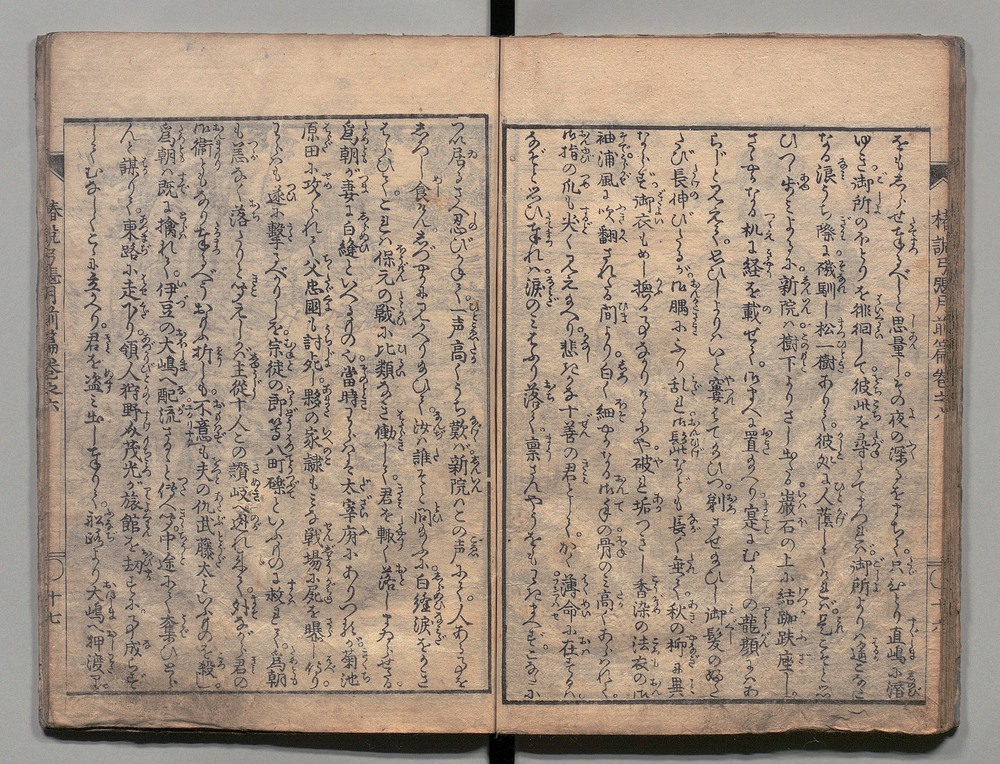 をもしらせ奉るべしと思量しその夜の深るをまちて只ひとり直嶋に潜
ゆき御所のほとりを徘徊して彼此を尋ねてまつれば御所よりは遥なる
なる浪うち際に磯馴し松一樹ありて彼処に人蔭してければ是こそと思
ひつつ歩みよるに新院は樹下よりさし出たる巌石の上に結跏趺座し
ささやかなる机に経を載せ御まへに置給へり寔にむかしの龍顔にはあ
らじと見えていとくやしよりはいと窶させ給ひし御髪の
たび長伸び御隅にふり乱れ御髭なども長く垂て秋の柳に異
ならず御衣もめし換るることなければや破れ垢つきし香染の法衣の御
袖浦風に吹翻さるる間より白く細やかなる御手の骨のみ高くあらはれて
御指の爪も尖く見え給へり悲きかな十善の君としてかく薄命に在すかな
なぞと思ひ奉れば涙のみさきに落て禀さんやうをもわきまへず
つい居るさへ忍びかねて一声高くうち歎ば新院はこの声に人あるを
しろし食けんしづかに見かへり給ひて汝は誰そと問給ふ白縫涙をかき
はらひてこれは保元の戦に比類なき働して君を輙く落しまゐらせたる
為朝が妻に白縫といへるもの也當時わらはは太宰府にありつれ菊池
原田に攻られて父忠國も討死し夥の家隷もみな戦場に屍を曝し
わらはも遂に撃るべかりしを宗徒の郎等八町礫といふものに救はれて為朝
も恙なく落たりと聞えしかば主從十人この讃岐へ迯れ来て外ながら君の
御衛もなり奉るべうおもふ折しも不意も夫の仇武藤太といふものを殺し
為朝は既に擒れて伊豆の大嶋へ配流さると傳へ聞中途にて奪ひとら
んと謀りて東路に走下り領人狩野介茂光が旅館を劫せしに事成らず
してむなしくここに立かへり君を盗み出し奉り船路より大嶋へ押渡り
椿説弓張月前篇巻之六
椿説弓張月前篇巻之六
十七